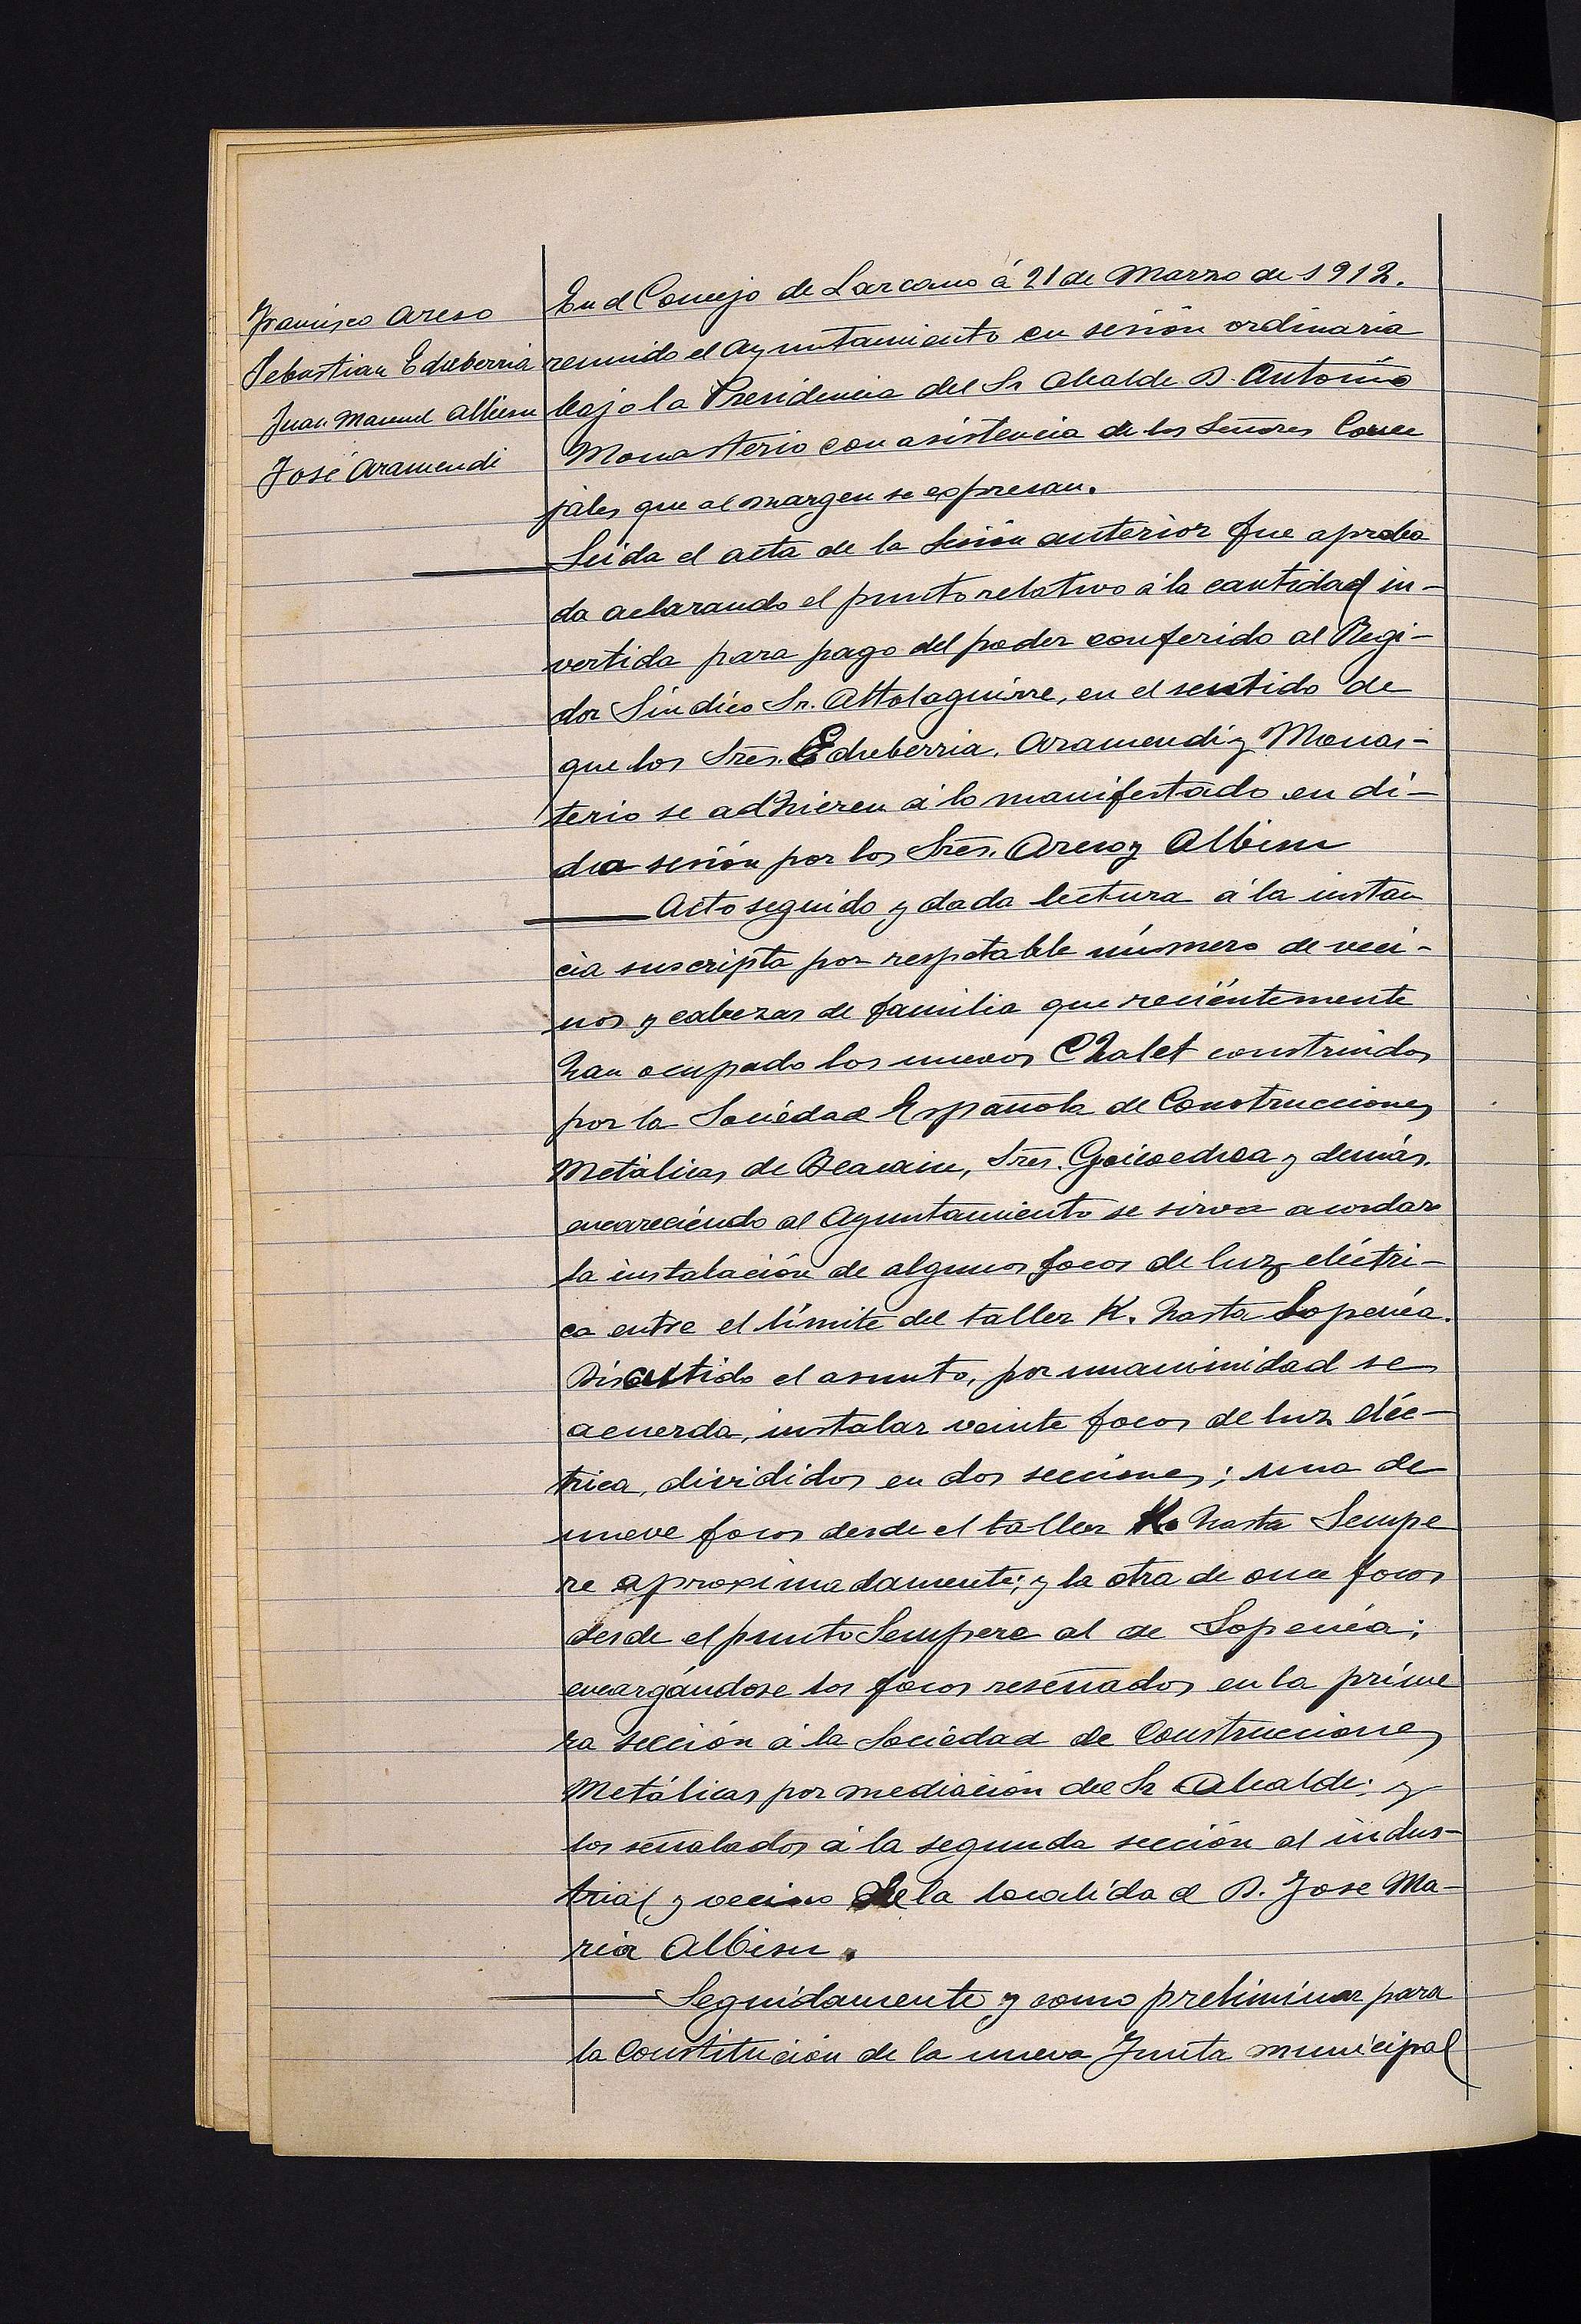 Francisco Areso
Sebastian Echeberria
Juan Manuel Albisu
José Aramendi
En el Concejo de Lazcano á 21 de Marzo de 1912.
reunido el Ayuntamiento en sesión ordinaria
bajo la Presidencia del Sr Alcalde D. Antonio
Monasterio con asistencia de los Señores Conce
jales que al margen se expresan.
Leida el acta de la Sesión anterior fue aproba
da aclarando el punto relativo á la cantidad in-
vertida para pago del poder conferido al Regi-
dor Síndico Sr. Altolaguirre, en el sentido de
que los Sres. Echeberria, Aramendi y Monas-
terio se adhieren á lo manifestado en di-
cha sesión por los Sres. Areso y Albisu
Acto seguido y dada lectura á la instan
cia suscripta por respetable número de veci-
nos y cabezas de familia que recientemente
han ocupado los nuevos Chalet construidos
por la Sociedad Española de Construcciones
Metálicas de Beasain, Sres. Goicoechea y demás.
encareciendo al Ayuntamiento se sirva acordar
la instalación de algunos focos de luz eléctri-
ca entre el límite del taller K. hasta Lopenéa.
Discutido el asunto, por unanimidad se
acuerda, instalar veinte focos de luz eléc-
trica, divididos en dos secciones; una de
nueve focos desde el taller K. hasta Sempe
re aproximadamente; y la otra de once focos
desde el punto Sempere al de Lopenéa;
encargándose los focos reseñados en la prime
ra sección á la Sociedad de Construcciones
Metálicas por mediación del Sr Alcalde; y
los señalados á la segunda sección al indus-
trial y vecino de la localidad D. Jose Ma-
ria Albisu.
Seguidamente y como preliminar para
la Constitución de la nueva Junta municipal